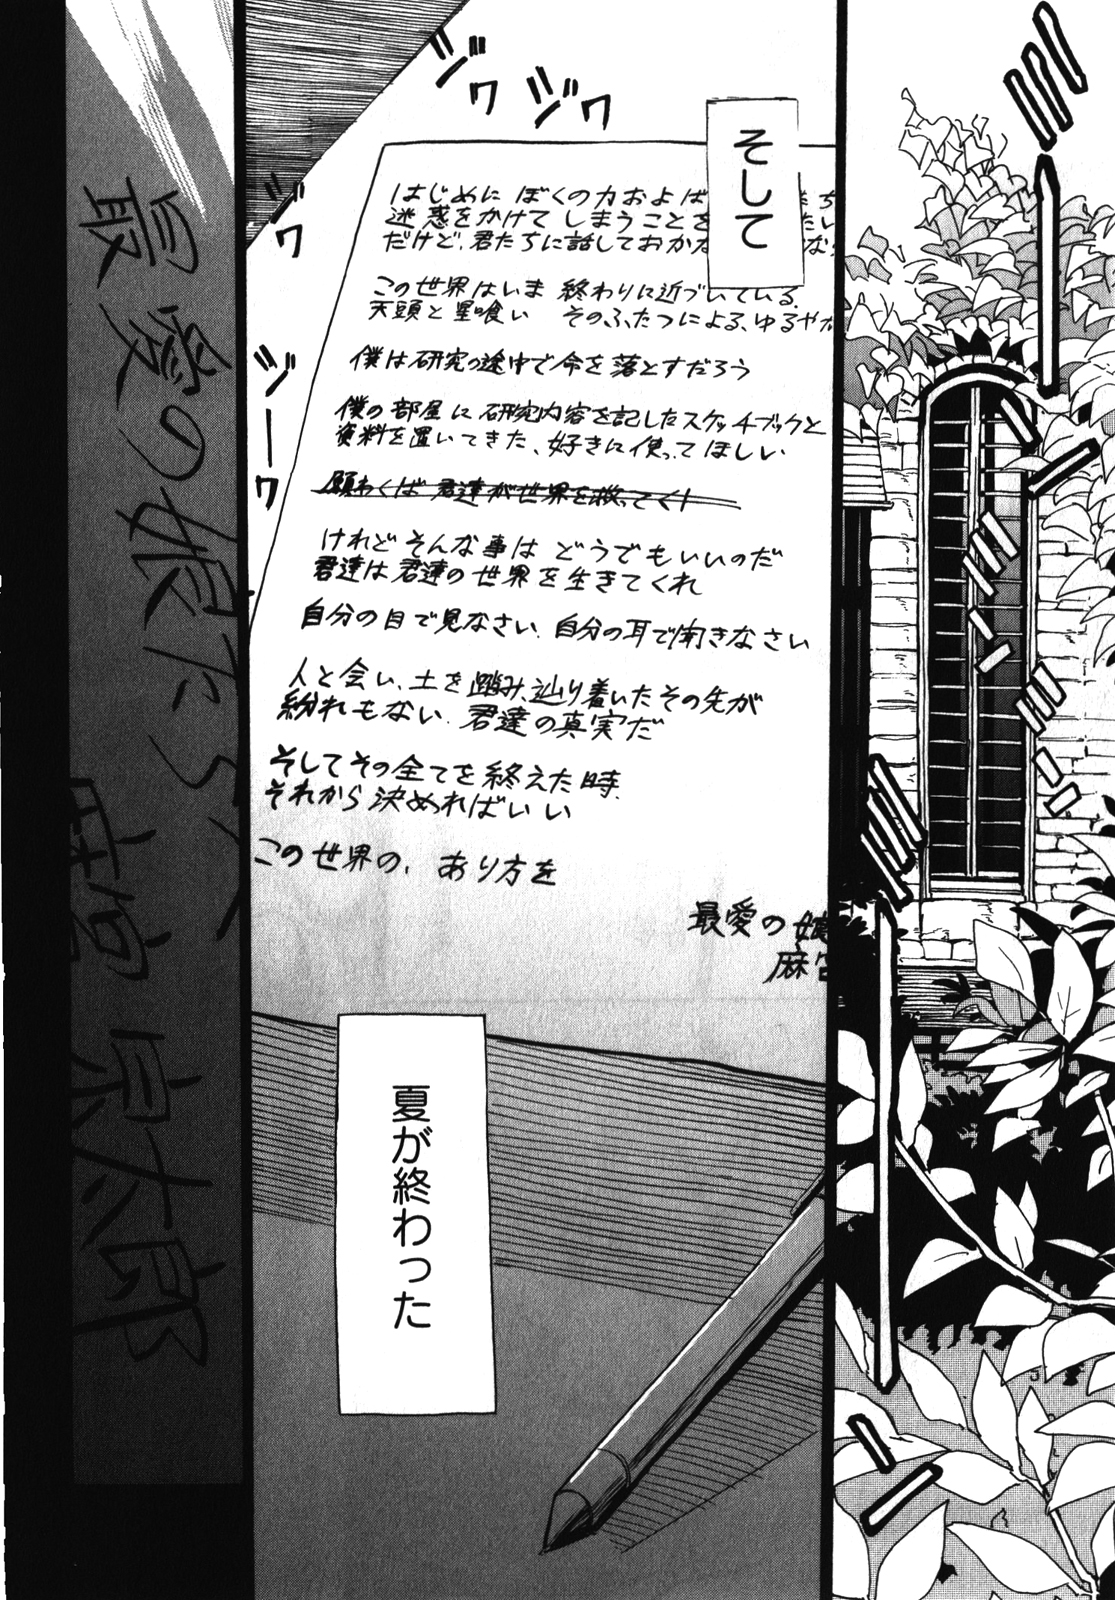 そして
はじめに ぼくの力およば
迷惑をかけて しまうことを
だけど、君たちに話しておかな
この世界はいま 終わりに近づいている.
天頭と星喰い そのふたつによる、ゆるやか
僕は研究の途中で命を落とすだろう
僕の部屋に研究内容を記したスケッチブックと
資料を置いてきた、好きに使ってほしい
願わくば君達が世界を救ってく
けれどそんな事は どうでもいいのだ
君達は君達の世界を生きてくれ
自分の目で見なさい. 自分の耳で聞きなさい
人と会い、土を踏み、辿り着いたその先が
紛れもない. 君達の真実だ
そしてその全てを終えた時.
それから決めればいい
この世界の、あり方を
最愛の娘
麻宮
夏が終わった
ジワ
ジワ
ジワ
ジーワ
最愛の娘たちへ
麻宮京太郎